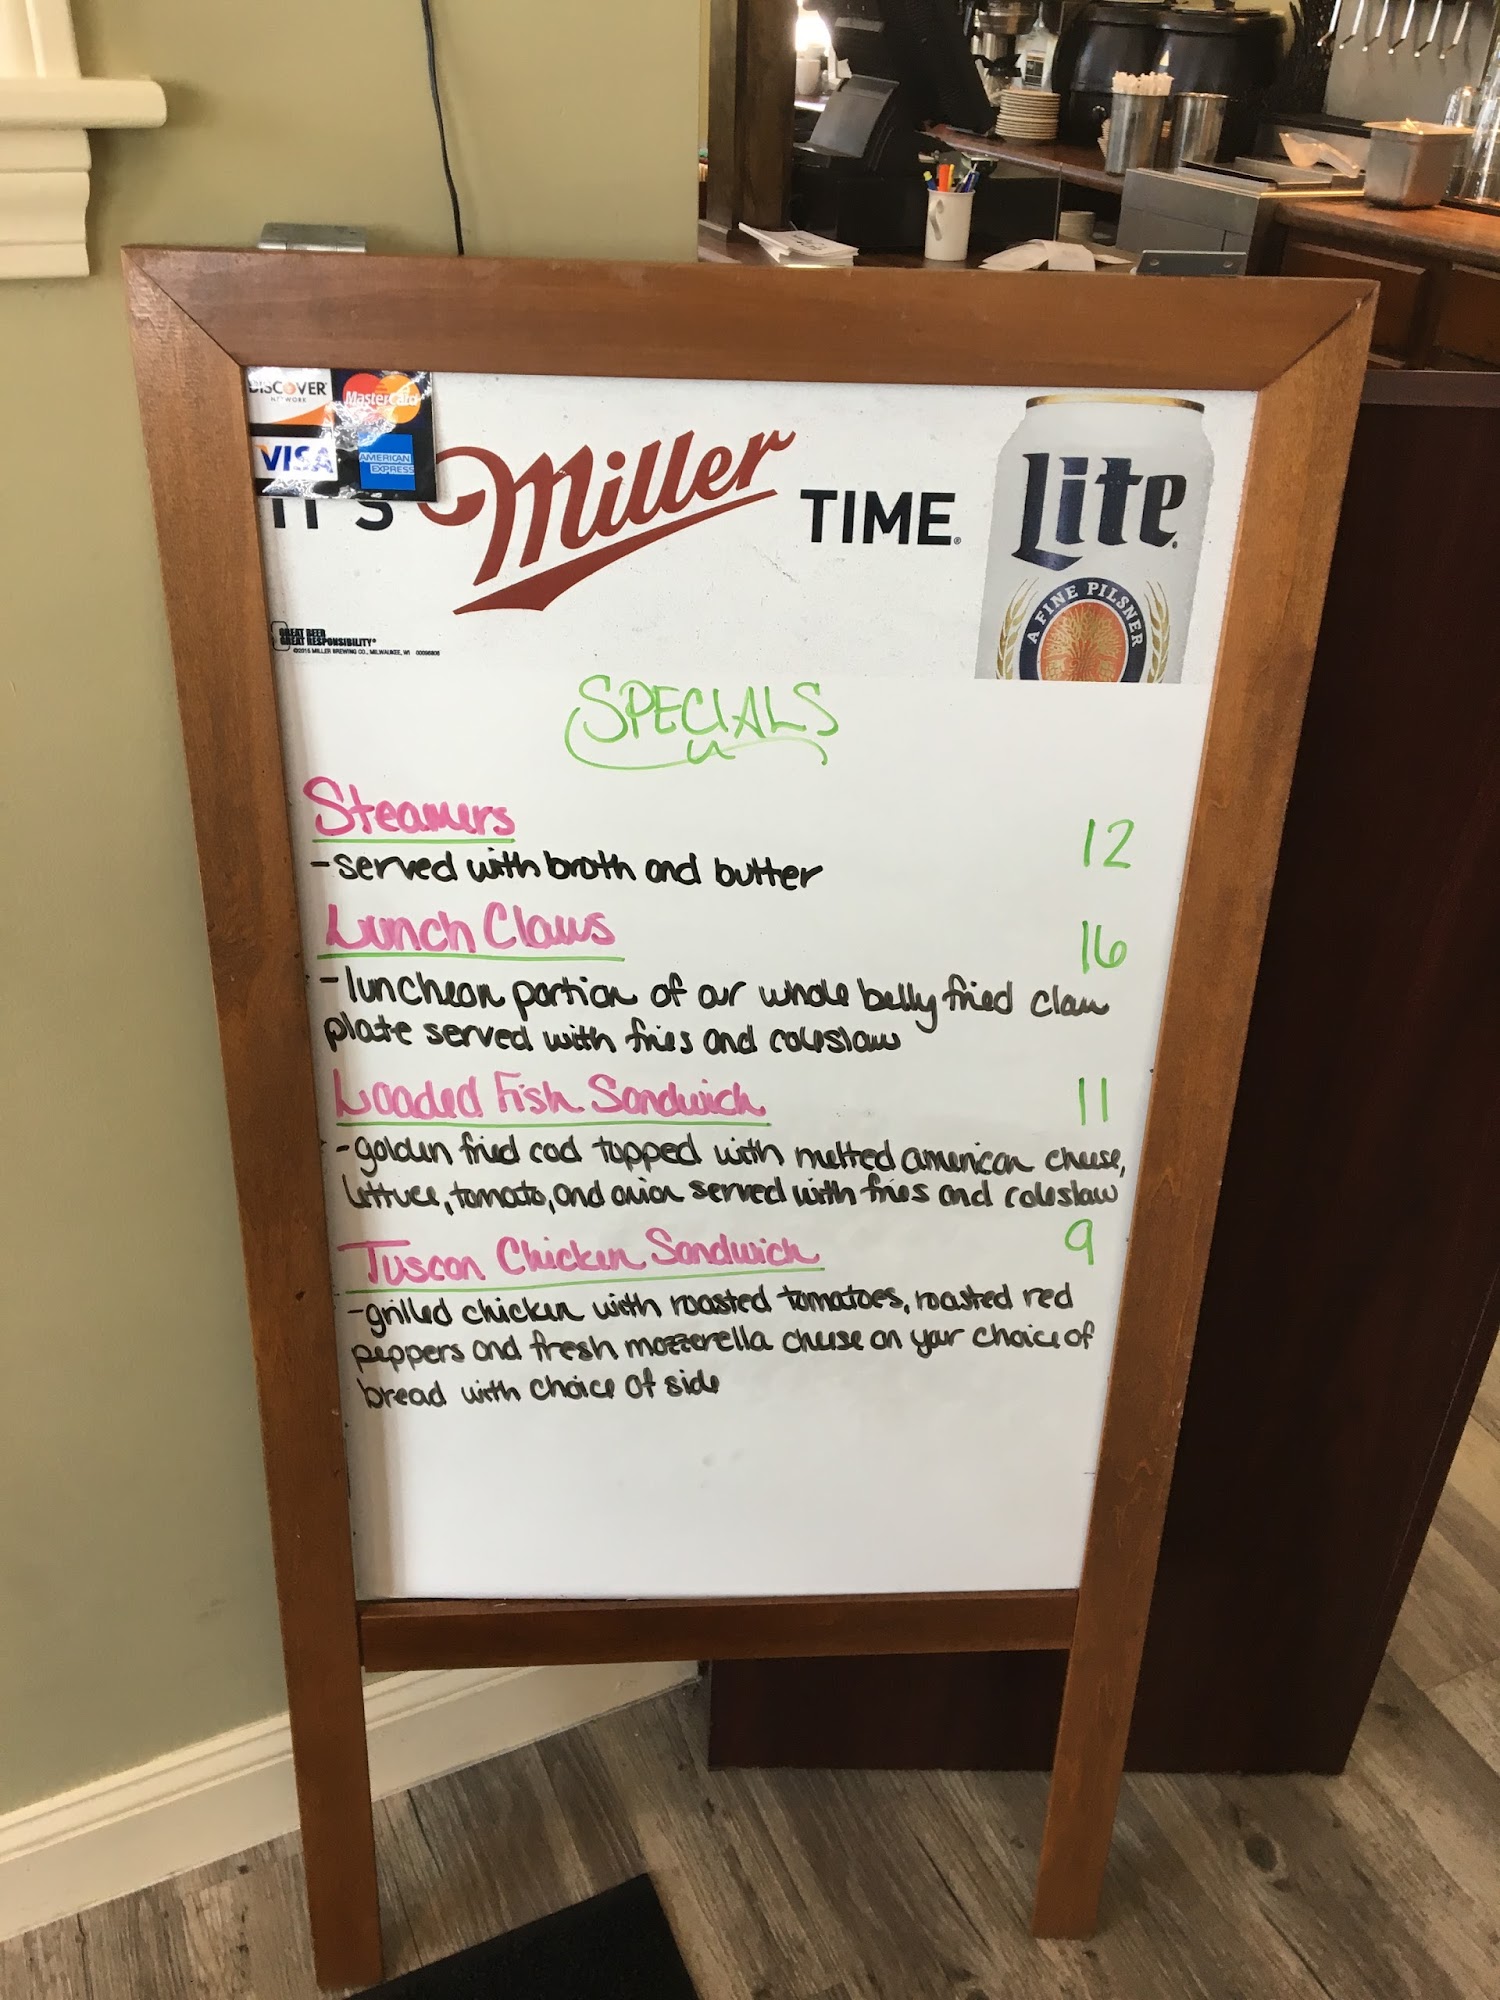 DISCOVER
NETWORK
MasterCard
VISA
AMERICAN
EXPRESS
IT'S Miller TIME.
Lite
A FINE PILSNER
GREAT BEER
GREAT RESPONSIBILITY®
©2015 MILLER BREWING CO., MILWAUKEE, WI
SPECIALS
Steamers 12
-served with broth and butter
Lunch Clams 16
-luncheon portion of our whole belly fried clam
plate served with fries and coleslaw
Loaded Fish Sandwich 11
-golden fried cod topped with melted american cheese,
lettuce, tomato, and onion served with fries and coleslaw
Tuscan Chicken Sandwich 9
-grilled chicken with roasted tomatoes, roasted red
peppers and fresh mozzerella cheese on your choice of
bread with choice of side